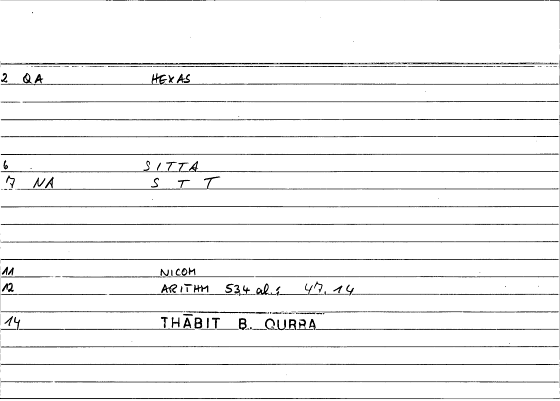 2 QA HEXAS
6 SITTA
7 NA S T T
11 NICOM
12 ARITHM 53,4 al.; 47,14
14 THĀBIT B. QURRA